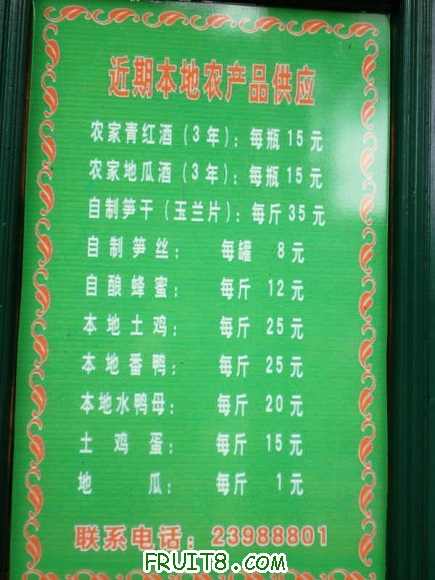 近期本地农产品供应
农家青红酒(3年):每瓶15元
农家地瓜酒(3年):每瓶15元
自制笋干(玉兰片):每斤35元
自制笋丝: 每罐 8元
自酿蜂蜜: 每斤 12元
本地土鸡: 每斤 25元
本地番鸭: 每斤 25元
本地水鸭母: 每斤 20元
土鸡蛋: 每斤 15元
地瓜: 每斤 1元
联系电话:23988801
FRUIT8.COM